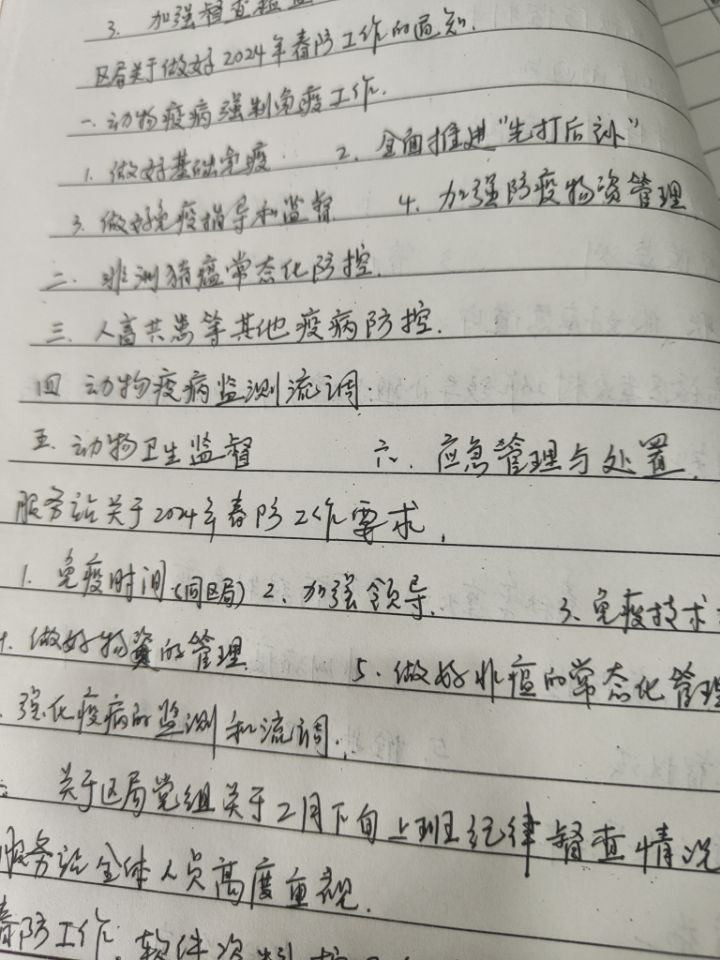 3. 加强督查
区局关于做好2024年春防工作的通知.
一.动物疫病强制免疫工作.
1. 做好基础免疫 2. 全面推进"先打后补"
3. 做好免疫指导和监督 4. 加强防疫物资管理
二. 非洲猪瘟常态化防控.
三. 人畜共患等其他疫病防控.
四 动物疫病监测流调.
五. 动物卫生监督 六. 应急管理与处置.
服务站关于2024年春防工作要求.
1. 免疫时间(同区局) 2. 加强领导. 3. 免疫技术
4. 做好物资的管理 5. 做好非瘟的常态化管理
强化疫病的监测和流调.
关于区局党组关于2月下旬上班纪律督查情况
服务站全体人员高度重视.
春防工作. 软件资料